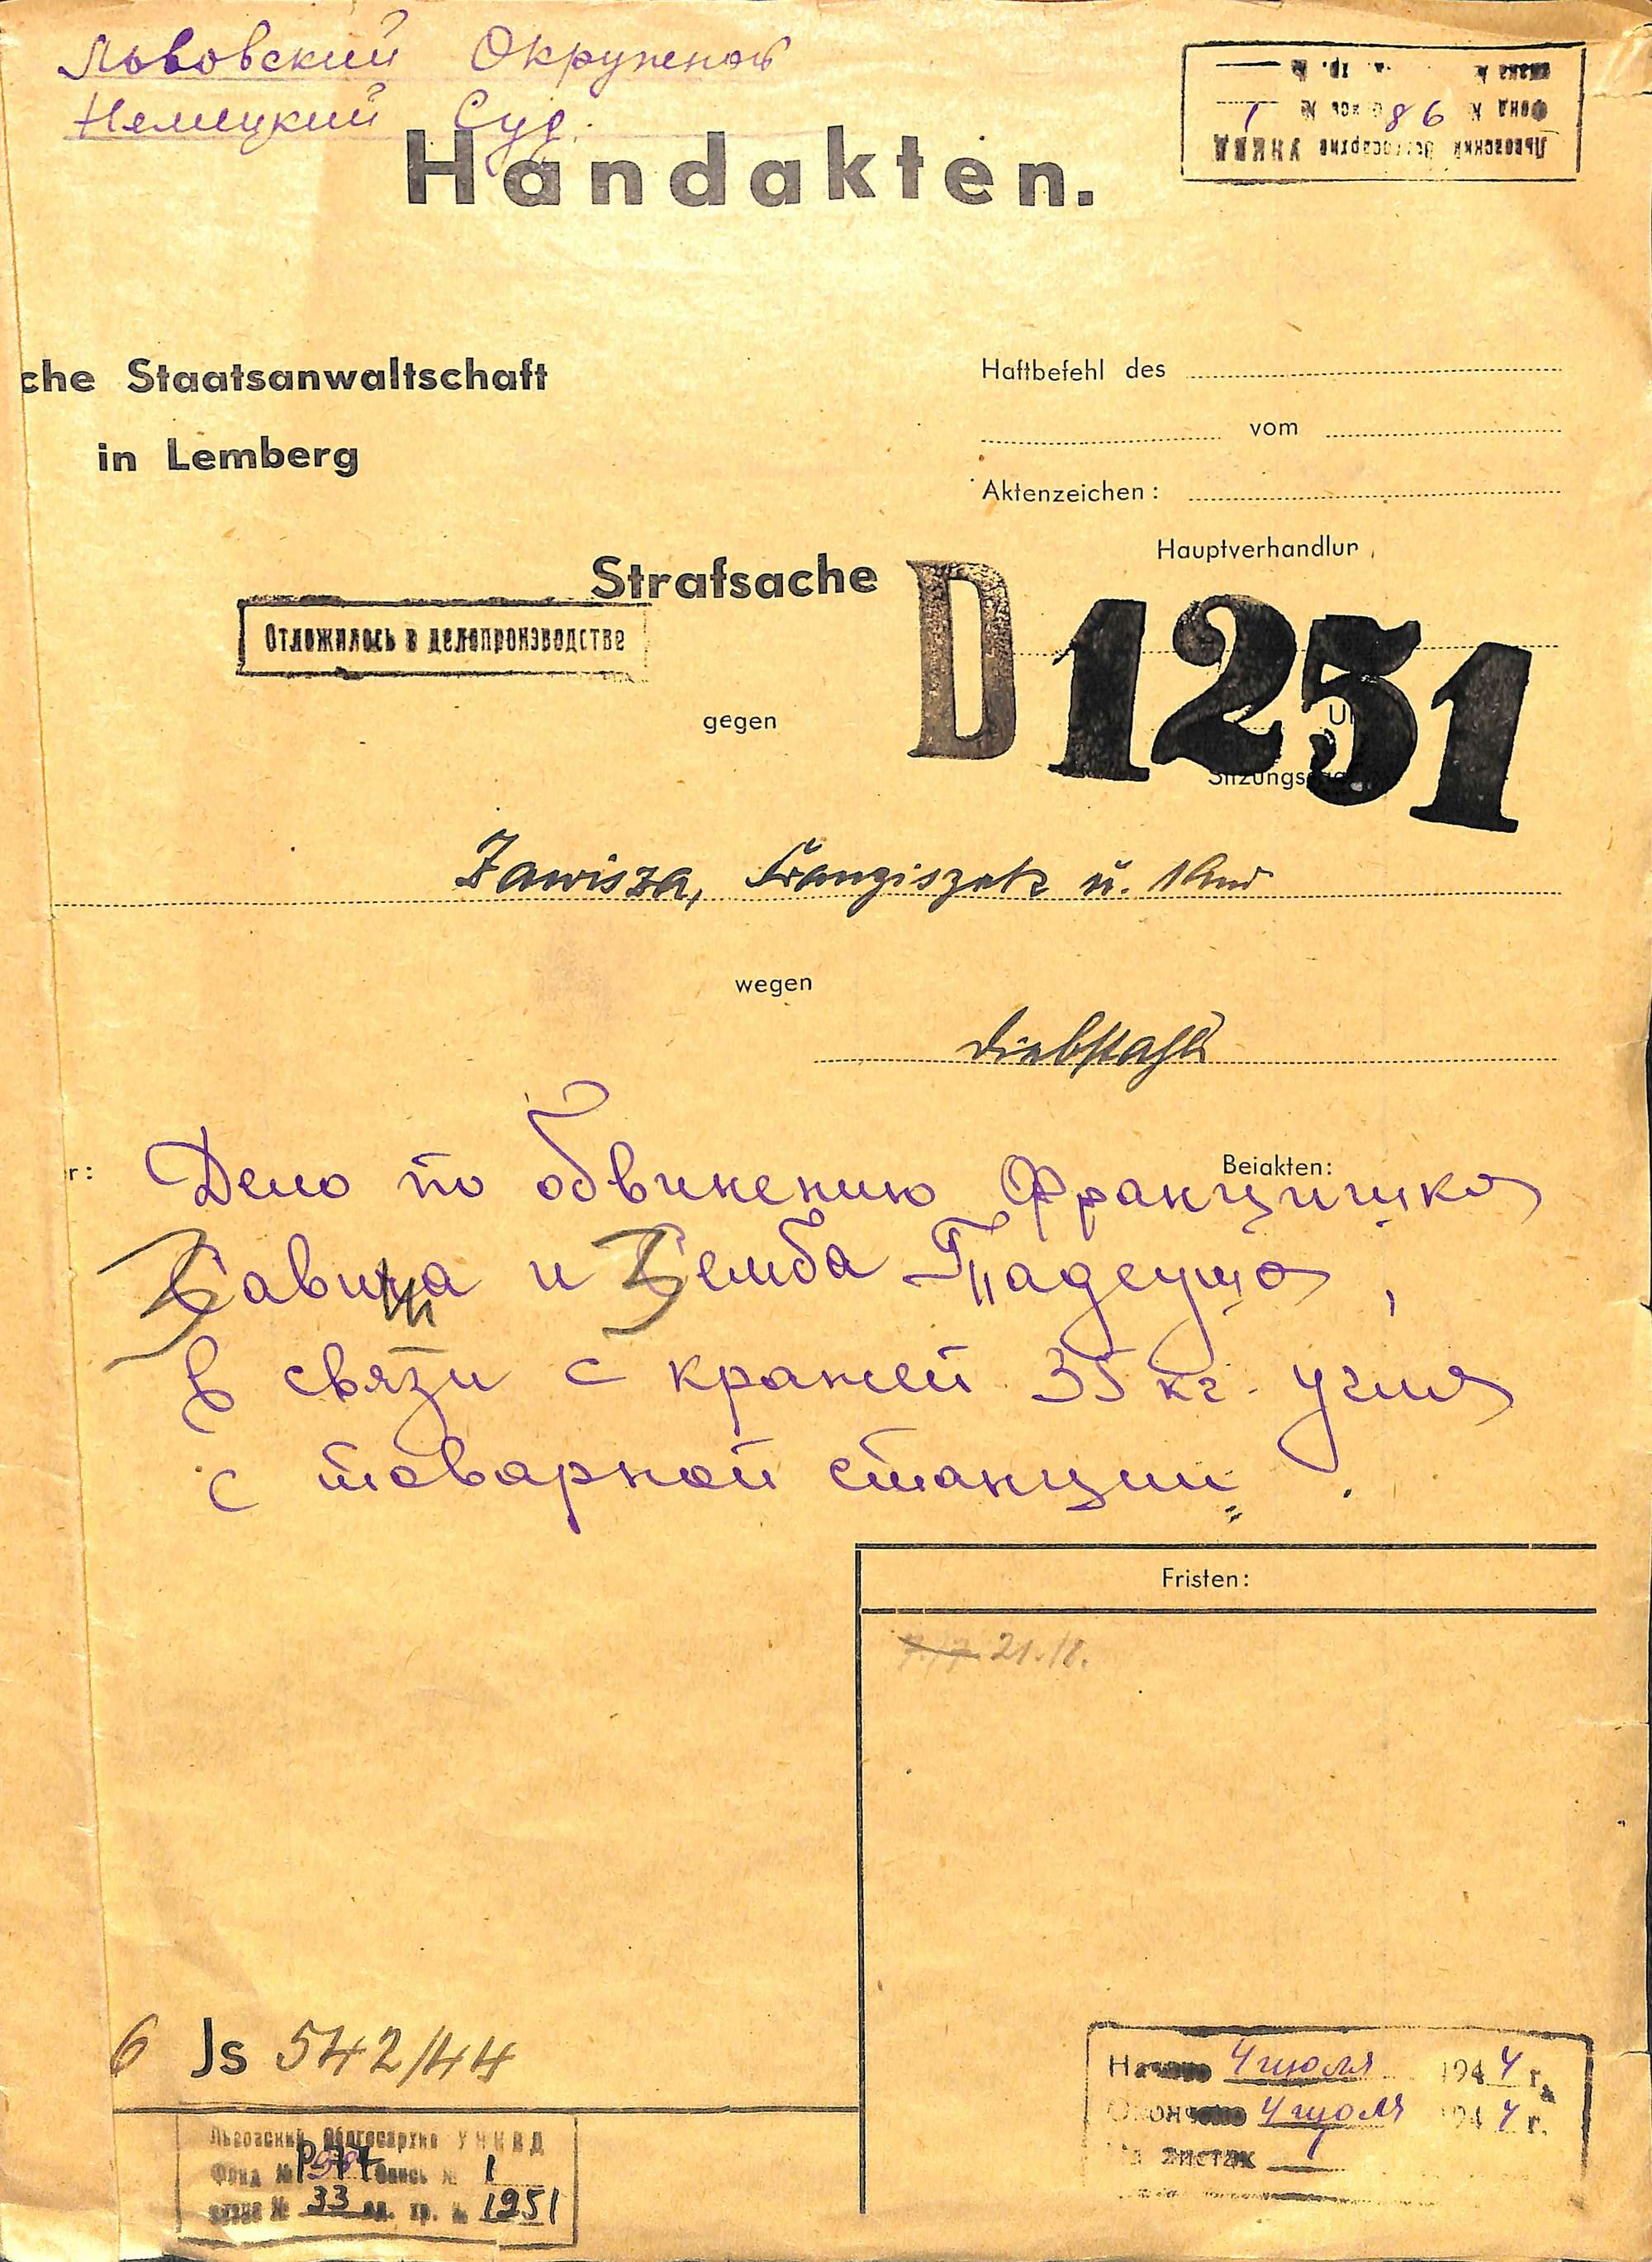 Львовский Окружной
Немецкий Суд.
Handakten.
Львовский Облгосархив УНКВД
Фонд № 86 опись № 1
che Staatsanwaltschaft
in Lemberg
Haftbefehl des
vom
Aktenzeichen:
Hauptverhandlun
Strafsache
D 1251
Отложилось в делопроизводстве
gegen
Zawisza, Franziszek u. 1 And
wegen
Diebstahls
r:
Beiakten:
Дело по обвинению Францишка
Завиша и Земба Тадеуша,
в связи с кражей 35 кг. угля
с товарной станции.
Fristen:
21./8.
6 Js 542/44
Начато 4 июля 1944 г.
Окончено 4 июля 1944 г.
На листах
Львовский Облгосархив УНКВД
Фонд № Р77 Опись № 1
связка № 33 ед. хр. № 1251